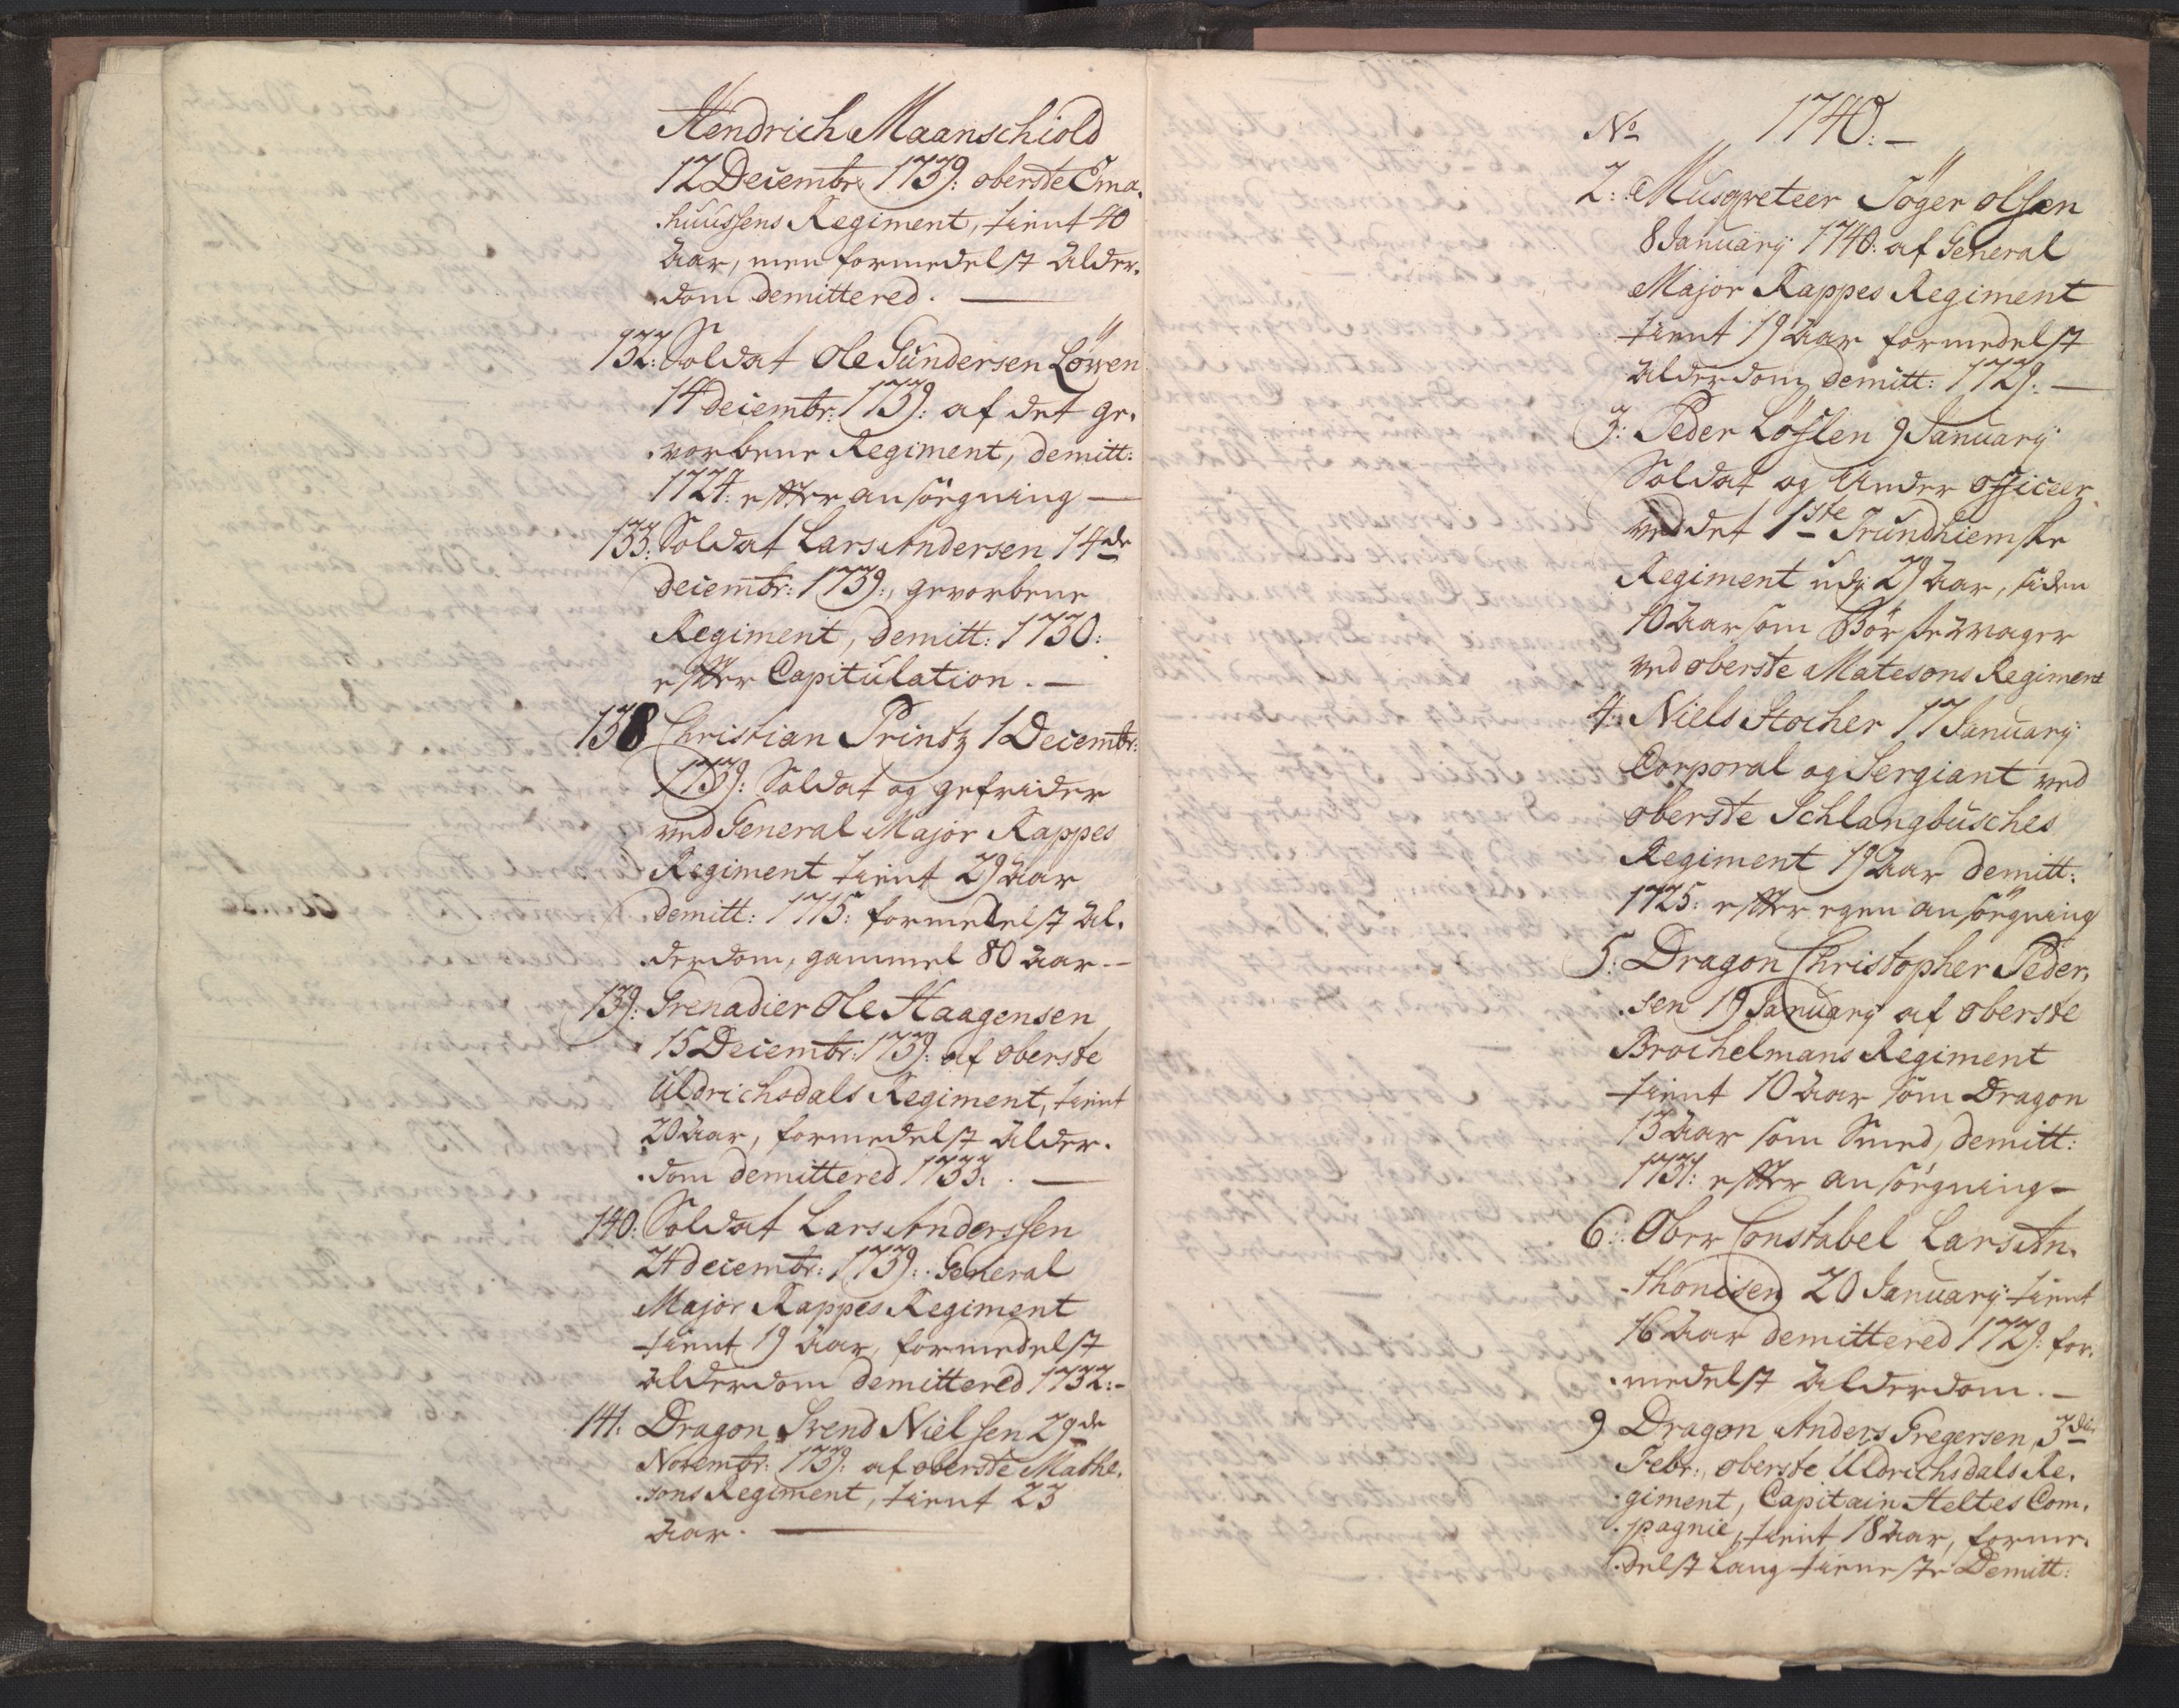 Hendrich Maanschiold
12 Decembr: 1739: oberste Ema,
,huussens Regiment, tient 40
Aar, men formedelst Alder,
,dom demittered. —
132: Soldat Ole Gundersen Löwen
14 decembr: 1739: af det ge,
,vorbene Regiment, demitt:
1724: efter ansögning —
133: Soldat Lars Andersen 14de
decembr: 1739:, gevorbene
Regiment, demitt: 1730:
efter Capitulation. —
138 Christian Printz 1 Decembr:
1739: Soldat og gefrider
ved General Major Rappes
Regiment tient 29 Aar
demitt: 1715: formedelst Al,
,derdom, gammel 80 Aar. —
139: Grenadier Ole Haagensen
15 Decembr: 1739: af oberste
Uldrichsdals Regiment, tient
20 Aar, formedelst Alder,
,dom demittered 1733. —
140: Soldat Lars Anderssen
24 decembr: 1739: General
Major Rappes Regiment
tient 19 Aar, formedelst
Alderdom demittered 1732: —
141: Dragon Svend Nielsen 29de
Novembr: 1739: af oberste Mathe,
,sons Regiment, tient 23
Aar. —
No 1740: —
2: Musqveteer Söger olssen
8 January 1740: af General
Major Rappes Regiment
tient 19 Aar formedelst
Alderdom demitt: 1729: —
3: Peder Löfslen 9 January
Soldat og Under officeer
ved det 1ste Trundhiemske
Regiment udj 29 Aar, siden
10 Aar som Bör
ved oberste Matesons Regiment
4: Niels Stocher 17 January
Corporal og Sergiant ved
oberste Schlangbusches
Regiment 19 Aar demitt:
1725: efter egen ansögning
5: Dragon Christopher Peder,
,sen 19 January af oberste
Brochelmans Regiment
tient 10 Aar som Dragon
13 Aar som Smed, demitt:
1731: efter ansögning —
6: Ober Constabel Lars An,
,thonisen 20 January tient
16 Aar demittered 1729: for,
,medelst Alderdom. —
9 Dragon Anders Gregersen, 3die
Febr:, oberste Uldrichsdals Re,
,giment, Capitain Heltes Com,
,pagnie, tient 18 Aar, forme,
,delst Lang tieneste Demitt: